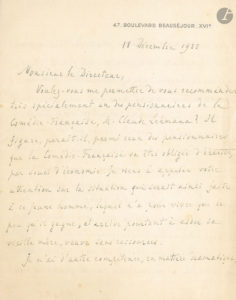 47, BOULEVARD BEAUSÉJOUR, XVIE
18 Décembre 1933
Monsieur le Directeur,
Voulez-vous me permettre de vous recommander
très spécialement un des pensionnaires de la
Comédie-Française, M. Claude Lehmann? Il
figure, paraît-il, parmi ceux des pensionnaires
que la Comédie-Française va être obligée d'écarter
par souci d'économie. Je viens appeler votre
attention sur la situation qui serait ainsi faite
à ce jeune homme, lequel n'a pour vivre que ce
peu qu'il gagne, et arrive pourtant à aider sa
vieille mère, veuve sans ressources.
Je n'ai d'autre compétence, en matière dramatique,